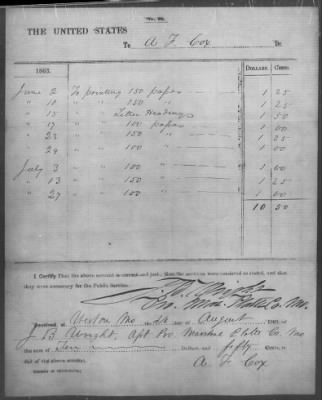 THE UNITED STATES
To A F Cox Dr.
1863. DOLLARS. CENTS.
June 2 To printing 150 papers 1 25
" 10 " " 150 " 1 25
" 15 " " Letter Headings 1 50
" 19 " " 100 papers 1 00
" 23 " " 150 " 1 25
" 29 " " 100 " 1 00
July 3 " " 100 " 1 00
" 13 " " 150 " 1 25
" 27 " " 100 " 1 00
10 50
I CERTIFY That the above account is correct and just; that the services were rendered as stated, and that
they were necessary for the Public Service.
Pro. Mar. Platte Co. Mo.
Received, at Weston Mo the 24 of August 186
J B Wright, Apt Pro. Marshal Platte Co Mo
the sum of Ten Dollars and fifty Cents, in
full of the above account.
A F Cox